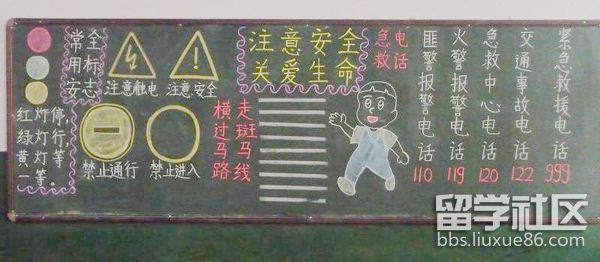 常用安
全标志
注意触电
注意安全
红灯停,
绿灯行,
黄灯等
一等.
禁止通行
禁止进入
注意安全
关爱生命
横过马路
走斑马线
急救
电话
匪警报警电话 110
火警报警电话 119
急救中心电话 120
交通事故电话 122
紧急救援电话 999
留学社区
bbs.liuxue86.com